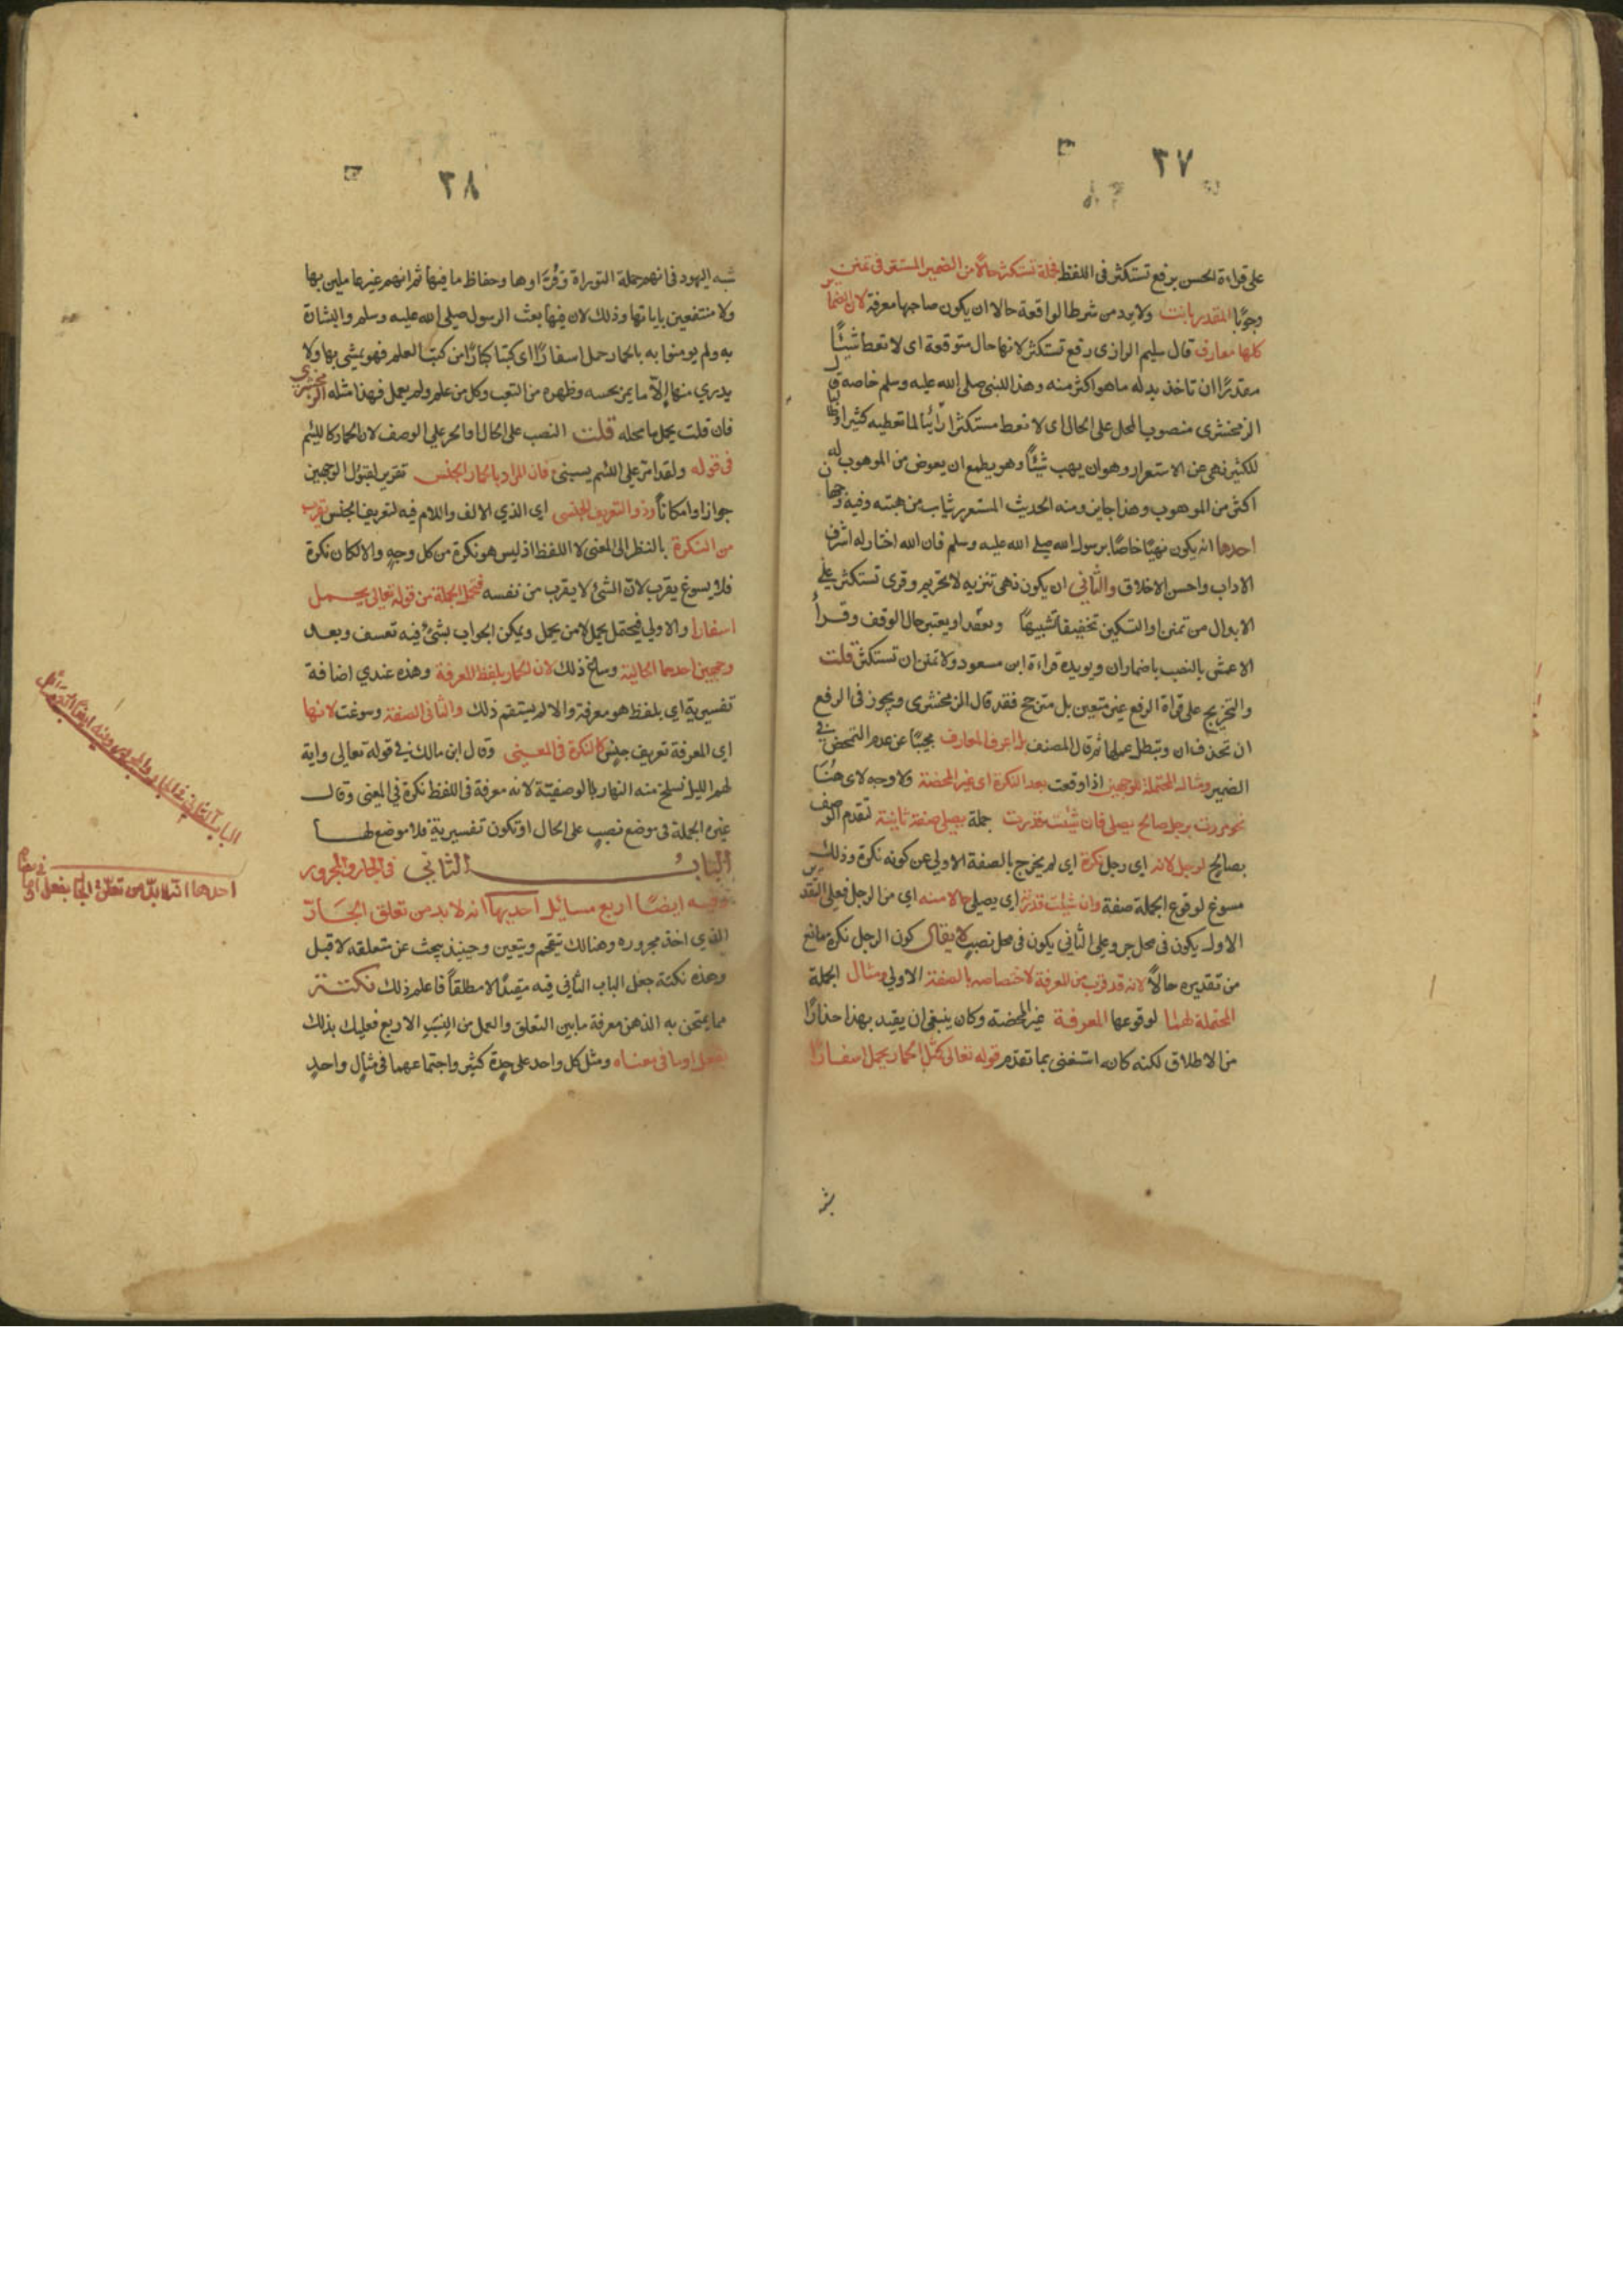 ٣٧
على قراءة الحسن برفع تستكثر فى اللفظ فجملة تستكثر حالا من الضمير المستتر فى تمنن
وجوبا المقدر بانت ولا بد من شرط الواقعة حالا ان يكون صاحبها معرفة لان الضمائر
كلها معارف قال سليم الرازى رفع تستكثر لانها حال متوقعة اى لا تعط شيئًا
مقدرًا ان تاخذ بدله ما هو اكثر منه وهذا للنبى صلى الله عليه وسلم خاصه قال
الزمخشرى منصوب المحل على الحال اى لا تعط مستكثرا رائيا لما تعطيه كثيرا او طالبا
للكثير نهى عن الاستغزار وهو ان يهب شيئًا وهو يطمع ان يعوض من الموهوب له
اكثر من الموهوب وهذا جايز ومنه الحديث المستغزر يثاب من هبته وفيه وجهان
احدها انه يكون نهيًا خاصًا برسول الله صلى الله عليه وسلم فان الله اختار له اشرف
الاداب واحسن الاخلاق والثانى ان يكون نهى تنزيه لا تحريم وقرى تستكثر على
الابدال من تمنن او التسكين تخفيفا تشبيهًا بعضد او يعتبر حال الوقف وقرأ
الاعمش بالنصب باضمار ان ويويده قراءة ابن مسعود ولا تمنن ان تستكثر قلت
والتخريج على قراة الرفع غير متعين بل مترجح فقد قال الزمخشرى ويجوز فى الرفع
ان تحذف ان ويبطل عملها ثم قال المصنف اعرف المعارف مجيبًا عن عدم التمحض فى
الضمير ومثاله المحتملة للوجهين اذا وقعت بعد النكرة اى غير المحضة ولا وجه لاى هنا
نحو مررت برجل صالح يصلى فان شئت قدرت جملة يصلى صفة ثانية تقدم الوصف
بصالح لرجل لانه اى رجل نكرة اى لم يخرج بالصفة الاولى عن كونه نكرة وذلك
مسوغ لوقوع الجملة صفة وان شئت قدرته اي يصلى حالا منه اي من الرجل فعلى التقدير
الاول يكون فى محل جر وعلى الثاني يكون فى محل نصب لا يقال كون الرجل نكرة مانع
من تقديره حالاً لانه قد قرب من المعرفة لاختصاصه بالصفة الاولى ومثال الجملة
المحتملة لهما لوقوعها المعرفة غير المحضة وكان ينبغى ان يقيد بهذا حذارًا
من الاطلاق لكنه كانه استغنى بما تقدم قوله تعالى كمثل الحمار يحمل اسفارًا
٣٨
شبه اليهود فى انهم حملة التوراة وقراوها وحفاظ ما فيها ثم انهم غير عاملين بها
ولا منتفعين باياتها وذلك لان فيها بعث الرسول صلى الله عليه وسلم والبشارة
به ولم يومنوا به بالحمار حمل اسفارًا اى كتبا كبارًا من كتب العلم فهو يمشى بها ولا
يدري منها إلّا ما يمر بجسه وظهره من التعب وكل من علم ولم يعمل فهذا مثله الزمخشرى
فان قلت يحمل ما محله قلت النصب على الحال او الجر على الوصف لان الحمار كاللئيم
فى قوله ولقد امر على اللئيم يسبنى فان المراد بالحمار الجنس تقرير لقبول الوجهين
جوازا وامكاناً وذو التعريف الجنسى اى الذي الالف واللام فيه لتعريف الجنس يقرب
من النكرة بالنظر الى المعنى لا اللفظ اذ ليس هو نكرة من كل وجهٍ والا لكان نكرة
فلا يسوغ يقرب لانّ الشئ لا يقرب من نفسه فتحمل الجملة من قوله تعالى يحمل
اسفارا والاولى فيحتمل يحمل لا من يحمل ويمكن الجواب بشئ فيه تعسف وبعد
وجهين احدهما الحالية وساغ ذلك لان الحمار بلفظ المعرفة وهذه عندي اضافة
تفسيرية اى بلفظ هو معرفة والا لم يستقم ذلك والثانى الصفة وسوغت لانها
اى المعرفة تعريف جنس كالنكرة فى المعنى وقال ابن مالك فى قوله تعالى واية
لهم الليل نسلخ منه النهار بالوصفيّة لانه معرفة فى اللفظ نكرة في المعنى وقال
غيره الجملة فى موضع نصبٍ على الحال او تكون تفسيرية فلا موضع لها
الباب الثاني فى الجار والمجرور
وفيه ايضًا اربع مسائل احديها انه لا بد من تعلق الجَارّ
الذي اخذ مجروره وهنالك يتقحم ويتعين وحينيذ يبحث عن متعلقه لا قبل
وهذه نكتة جعل الباب الثانى فيه مقيدًا لا مطلقاً فاعلم ذلك نكتة
مما يمتحن به الذهن معرفة ما بين التعلق والعمل من النِسَبِ الاربع فعليك بذلك
بفعل او ما فى معناه ومثل كل واحد على حِدة كثير واجتماعهما فى مثالٍ واحدٍ
الباب الثانى فى الجار والمجرور وفيه ايضًا
احدها انه لا بدّ من تعلق الجار بفعل او